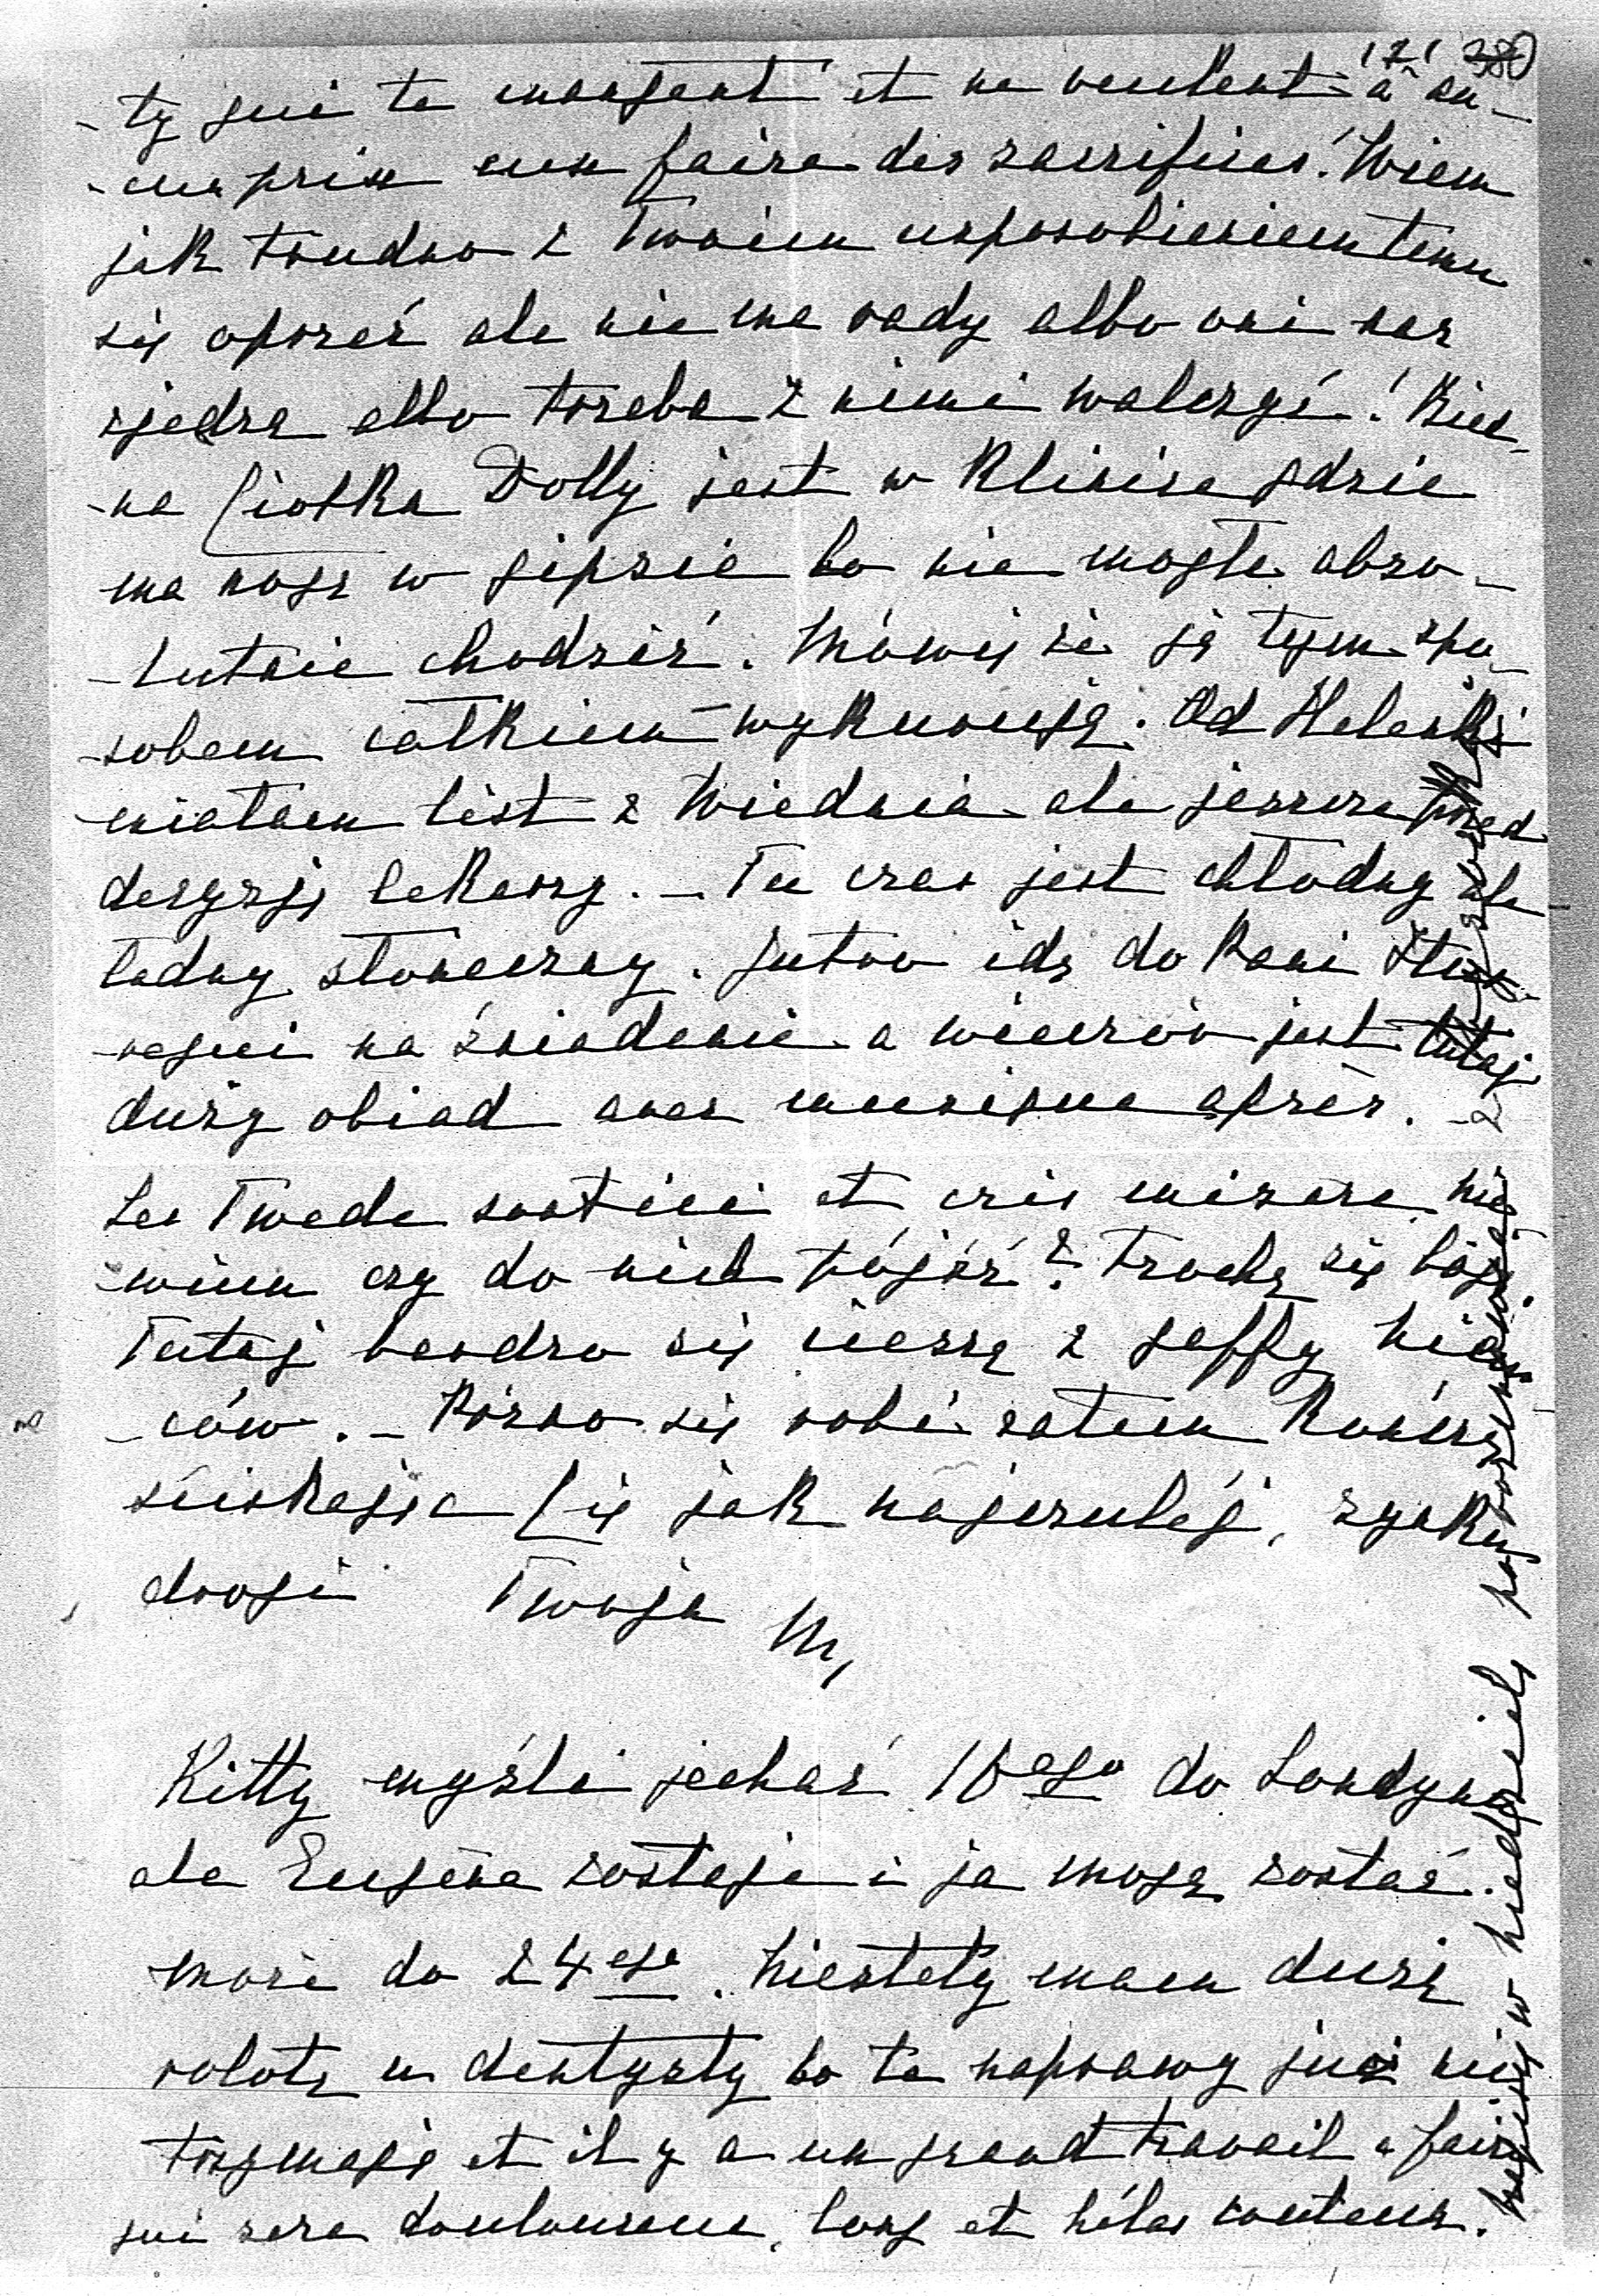 121 380
-ty qui te mangent et ne veulent à au-
-cun prix eux faire des sacrifices! Wiem
jak trudno z Twoim usposobieniem temu
się oprzeć ale nie ma rady albo oni nas
zjedzą albo trzeba z nimi walczyć! Bied-
-na Ciotka Dolly jest w Klinice gdzie
ma nogę w gipsie bo nie mogła abso-
-lutnie chodzić. Mówią że ją tym spo-
-sobem całkiem wykurują. Od Helenki
miałam list z Wiednia ale jeszcze przed
decyzją lekarzy. – Tu czas jest chłodny ale
ładny słoneczny. Jutro idę do Pani
na śniadanie a wieczór jest tutaj
duży obiad avec musique après. –
Les Twede sont ici et cris misère, nie
-wiem czy do nich pójść? Trochę się boję.
Tutaj bardzo się cieszą z gaffy Niem-
-ców. – Późno się robi zatem kończę
ściskając Cię jak najczulej, synku
drogi Twoja M,
Kitty myśli jechać 16ego do Londynu
ale Eugène zostaje i ja mogę zostać
może do 24ego. Niestety mam dużą
robotę u dentysty bo te naprawy już nie
trzymają et il y a un grand travail a faire
qui sera douloureux, long et hélas couteux.
Napisz w niedzielę po